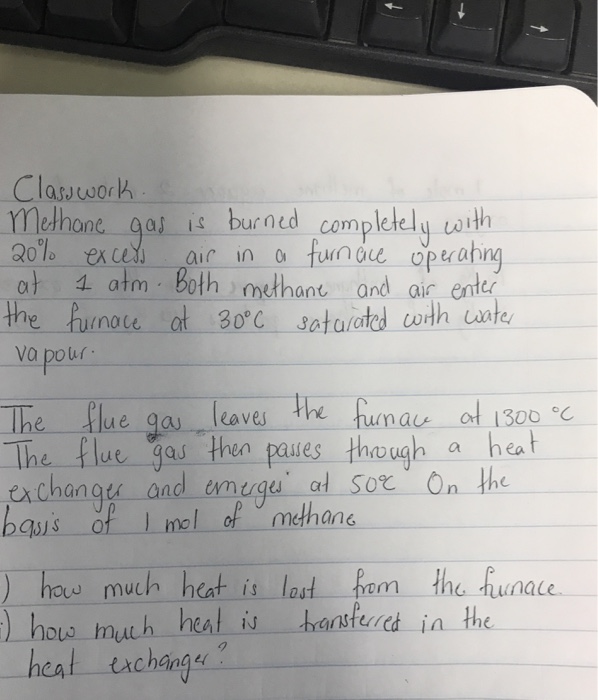 Classwork.
Methane gas is burned completely with
20% excess air in a furnace operating
at 1 atm. Both methane and air enter
the furnace at 30°C saturated with water
vapour.
The flue gas leaves the furnace at 1300 °C
The flue gas then passes through a heat
exchanger and emerges at 50°C On the
basis of 1 mol of methane
) how much heat is lost from the furnace.
i) how much heat is transferred in the
heat exchanger?